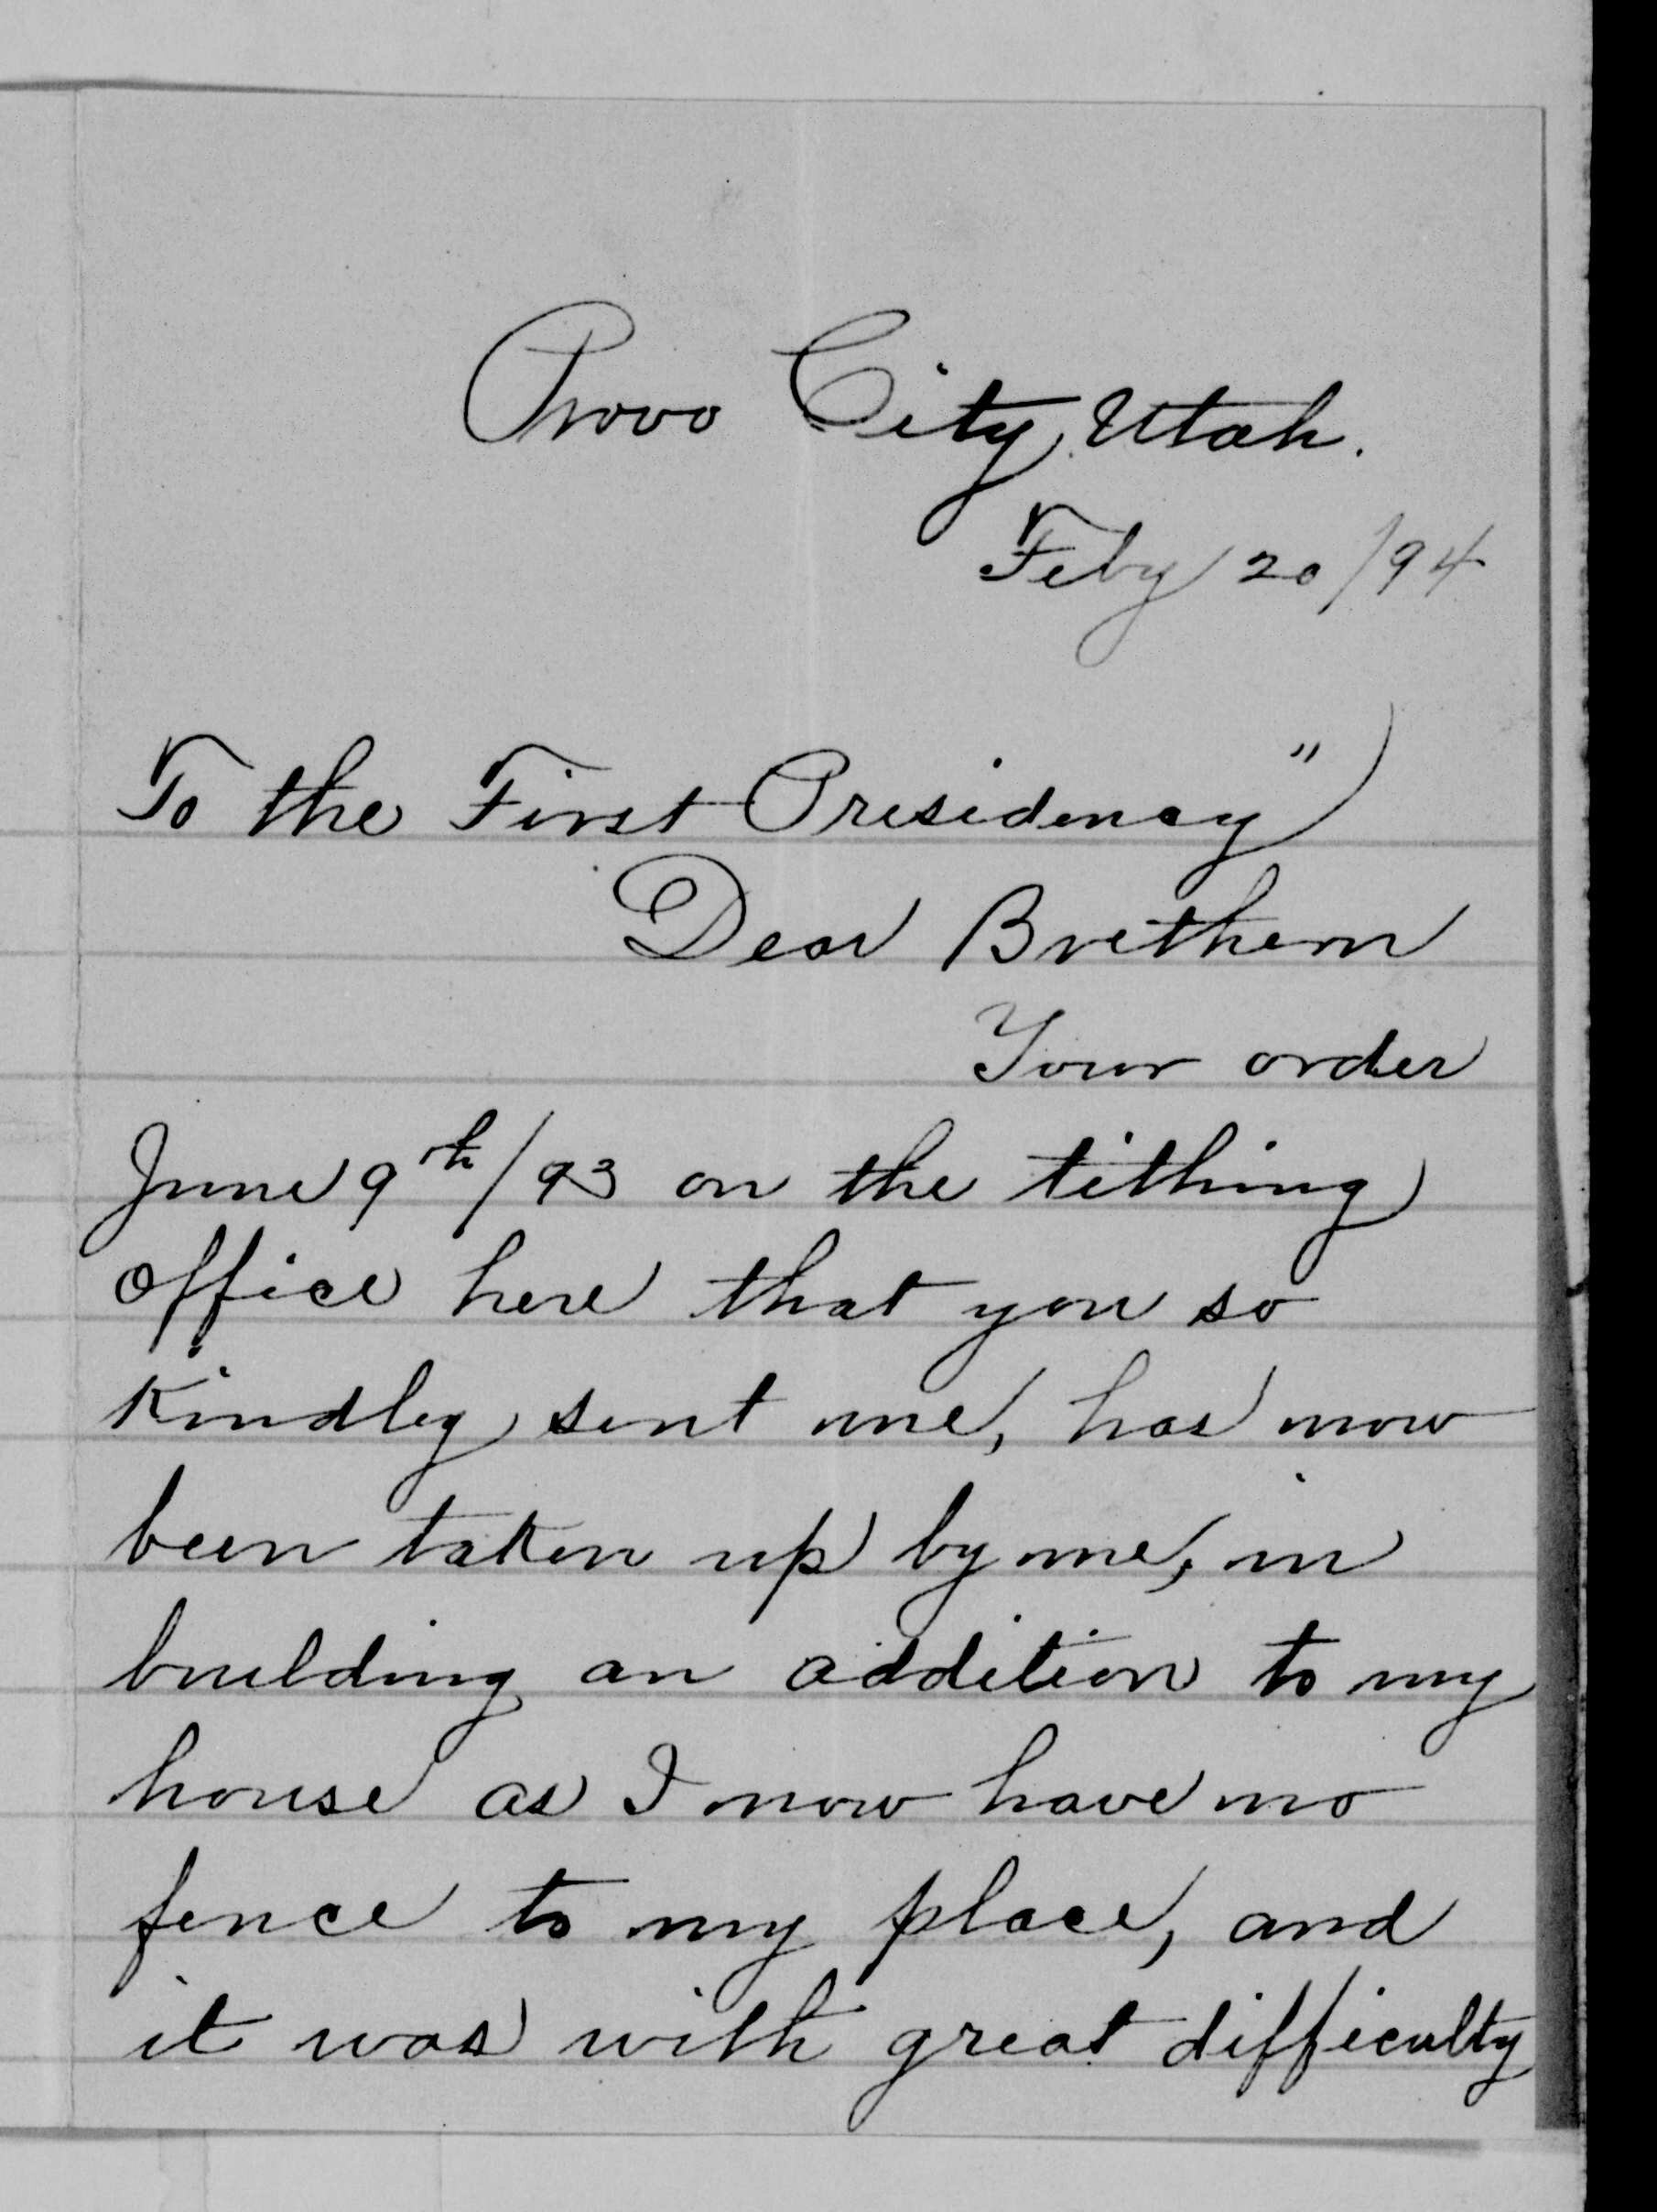 Provo City, Utah.
Feby 20/94
To the First Presidency"
Dear Brethern
Your order
June 9th/93 on the tithing
office here that you so
Kindley sent me, has now
been taken up by me, in
building an addition to my
house as I now have no
fence to my place, and
it was with great difficulty